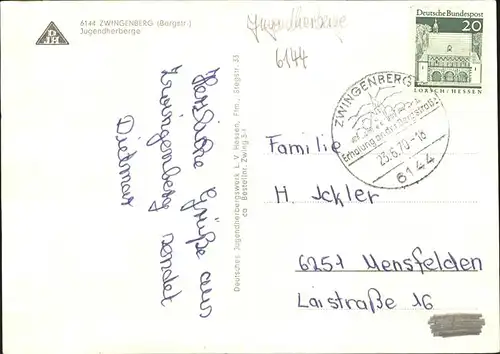 6144 ZWINGENBERG (Bergstr.)
Jugendherberge
DJH
Jugendherberge
6144
Deutsche Bundespost
20
LORSCH/HESSEN
ZWINGENBERG
Erholung an der Bergstraße
23.6.70-18
6144
Herzliche Grüße aus
Zwingenberg sendet
Dietmar
Deutsches Jugendherbergswerk L.V. Hessen, Ffm., Stegstr. 33
Bestellnr. Zwing 3-1
Familie
H. Ickler
6251 Mensfelden
Laistraße 16